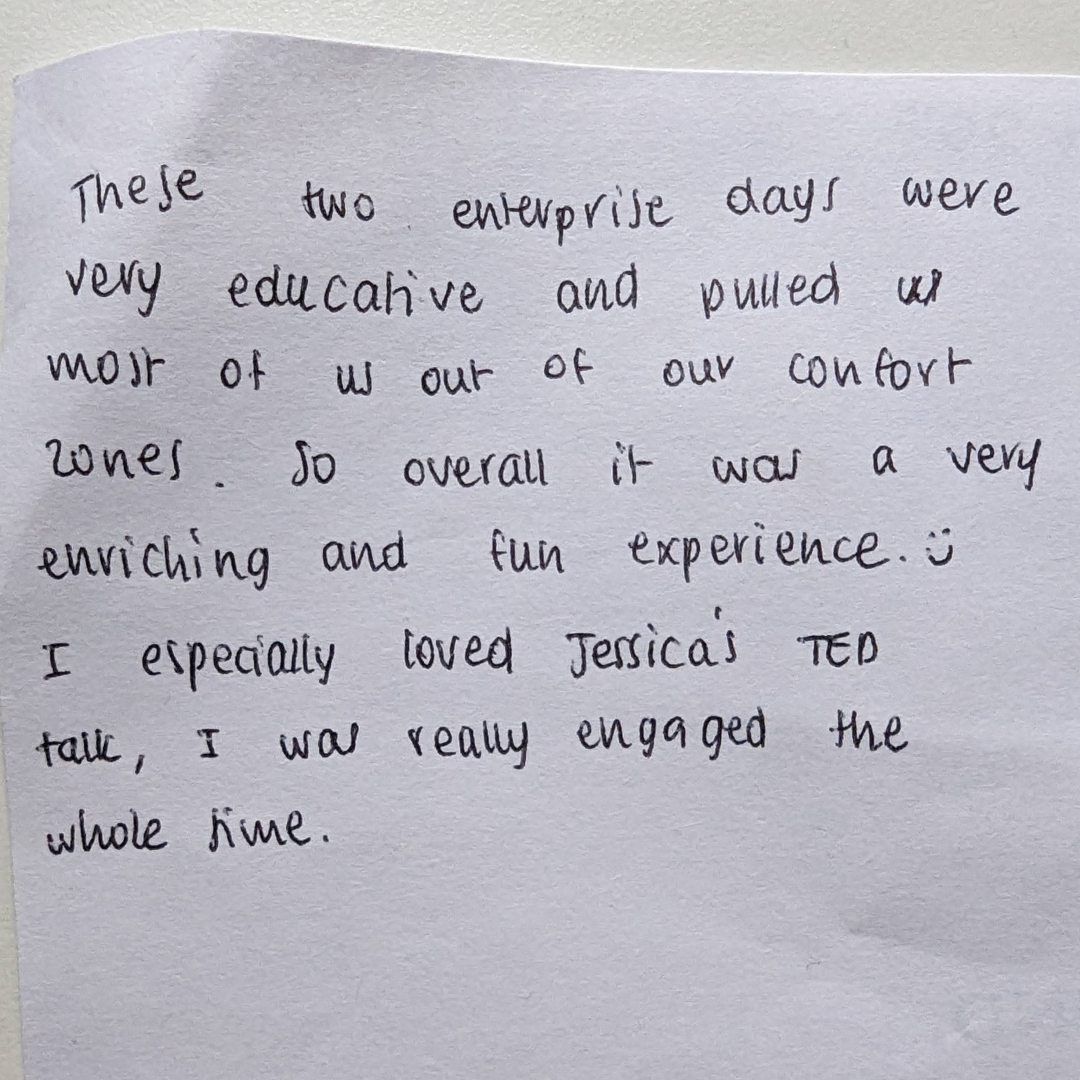 These two enterprise days were
very educative and pulled us
most of us out of our confort
zones. So overall it was a very
enriching and fun experience. :)
I especially loved Jessica's TED
talk, I was really engaged the
whole time.